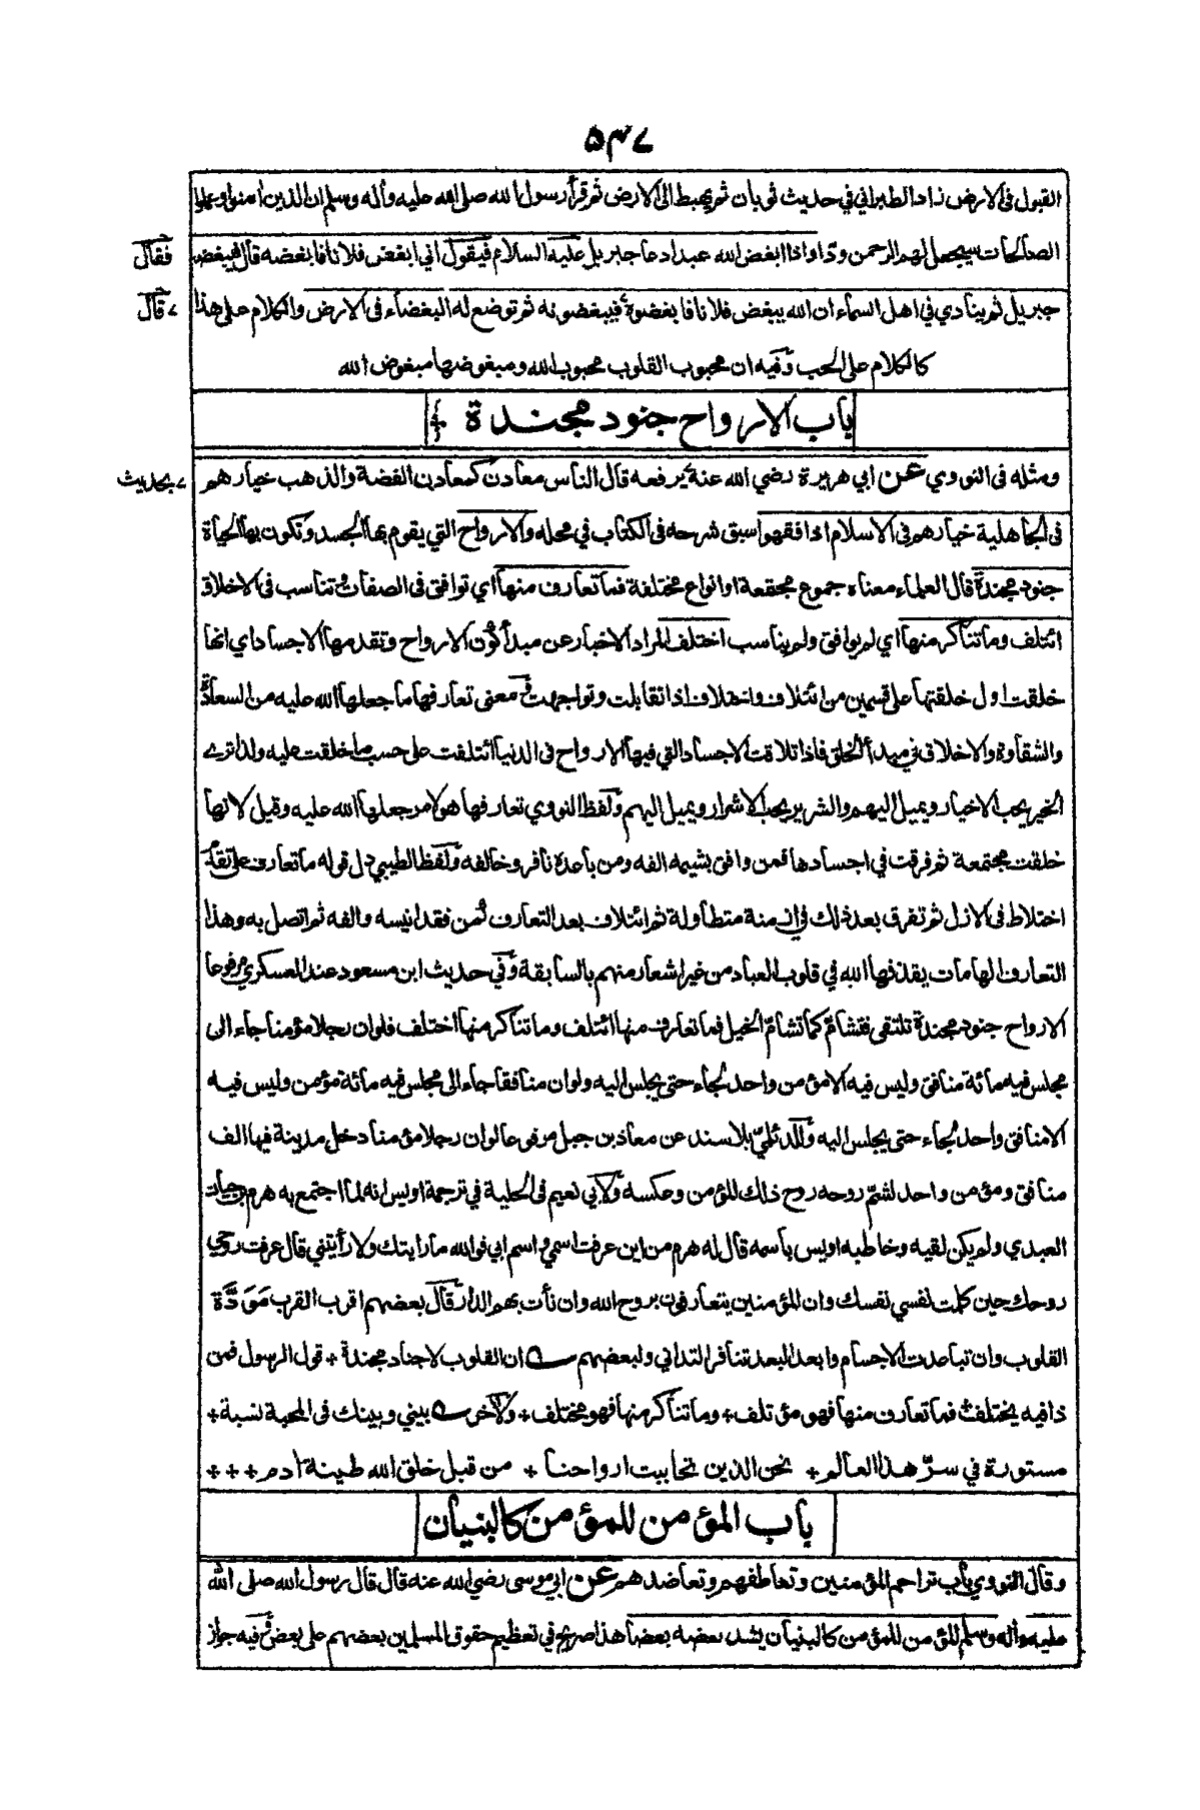 ۵۴۷
القبول فى الارض زاد الطبراني في حديث ثوبان ثم يهبط الى الارض ثم قرأ رسول الله صلى الله عليه وأله وسلم ان الذين امنوا وعملوا
الصالحات سيجعل لهم الرحمن ودا واذا ابغض الله عبدا دعا جبريل عليه السلام فيقول اني ابغض فلانا فابغضه قال فيبغضه
فقال
جبريل ثم ينادي في اهل السماء ان الله يبغض فلانا فابغضوه فيبغضونه ثم توضع له البغضاء فى الارض والكلام على هذا
قال
كالكلام على الحب وفيه ان محبوب القلوب محبوب الله ومبغوضها مبغوض الله
باب الارواح جنود مجندة
ومثله فى النووي عن ابي هريرة رضي الله عنه يرفعه قال الناس معادن كمعادن الفضة والذهب خيارهم
بحديث
فى الجاهلية خيارهم فى الاسلام اذا فقهوا سبق شرحه فى الكتاب في محله والارواح التي يقوم بها الجسد وتكون بها الحياة
جنود مجندة قال العلماء معناه جموع مجتمعة او انواع مختلفة فما تعارف منها اي توافق فى الصفات وتناسب فى الاخلاق
ائتلف وما تناكر منها اي لم يوافق ولم يناسب اختلف المراد الاخبار عن مبدأ كون الارواح وتقدمها الاجساد اي انها
خلقت اول خلقتها على قسمين من ائتلاف واختلاف اذا تقابلت وتواجهت في معنى تعارفها ما جعلها الله عليه من السعادة
والشقاوة والاخلاق في مبدأ الخلق فاذا تلاقت الاجساد التي فيها الارواح فى الدنيا ائتلفت على حسب ما خلقت عليه ولذا ترى
الخير يحب الاخيار ويميل اليهم والشرير يحب الاشرار ويميل اليهم ولفظ النووي تعارفها هو لامر جعلها الله عليه وقيل لانها
خلقت مجتمعة ثم فرقت في اجسادها فمن وافق بشيمه الفه ومن باعده نافره وخالفه ولفظ الطيبي دل قوله ما تعارف على تقدم
اختلاط فى الازل ثم تفرق بعد ذلك في ازمنة متطاولة ثم ائتلاف بعد التعارف كمن فقد انيسه والفه ثم اتصل به وهذا
التعارف الهامات يقذفها الله في قلوب العباد من غير اشعار منهم بالسابقة وفي حديث ابن مسعود عند العسكري مرفوعا
الارواح جنود مجندة تلتقى فتشامّ كما تشامّ الخيل فما تعارف منها ائتلف وما تناكر منها اختلف فلو ان رجلا مؤمنا جاء الى
مجلس فيه مائة منافق وليس فيه الا مؤمن واحد لجاء حتى يجلس اليه ولو ان منافقا جاء الى مجلس فيه مائة مؤمن وليس فيه
الا منافق واحد لجاء حتى يجلس اليه وللديلميّ بلا سند عن معاذ بن جبل مرفوعا لو ان رجلا مؤمنا دخل مدينة فيها الف
منافق ومؤمن واحد لشمّ روحه روح ذلك المؤمن وعكسه ولابي نعيم فى الحلية في ترجمة اويس انه لما اجتمع به هرم بن حيان
العبدي ولم يكن لقيه وخاطبه اويس باسمه قال له هرم من اين عرفت اسمي واسم ابي فوالله ما رايتك ولا رأيتني قال عرفت روحي
روحك حين كلمت نفسي نفسك وان المؤمنين يتعارفون بروح الله وان نأت بهم الدار قال بعضهم اقرب القرب مَوَدَّة
القلوب وان تباعدت الاجسام وابعد البعد تنافر التداني ولبعضهم ان القلوب لاجناد مجندة + قول الرسول فمن
ذا فيه يختلف + فما تعارف منها فهو مؤتلف + وما تناكر منها فهو مختلف + ولأخر بيني وبينك فى المحبة نسبة +
مستورة في سرّ هذا العالم + نحن الذين تحاببت ارواحنا + من قبل خلق الله طينة أدم + + +
باب المؤمن للمؤمن كالبنيان
وقال النووي باب تراحم المؤمنين وتعاطفهم وتعاضدهم عن ابي موسى رضي الله عنه قال قال رسول الله صلى الله
عليه وأله وسلم المؤمن للمؤمن كالبنيان يشد بعضه بعضا هذا صريح في تعظيم حقوق المسلمين بعضهم على بعض وفيه جواز